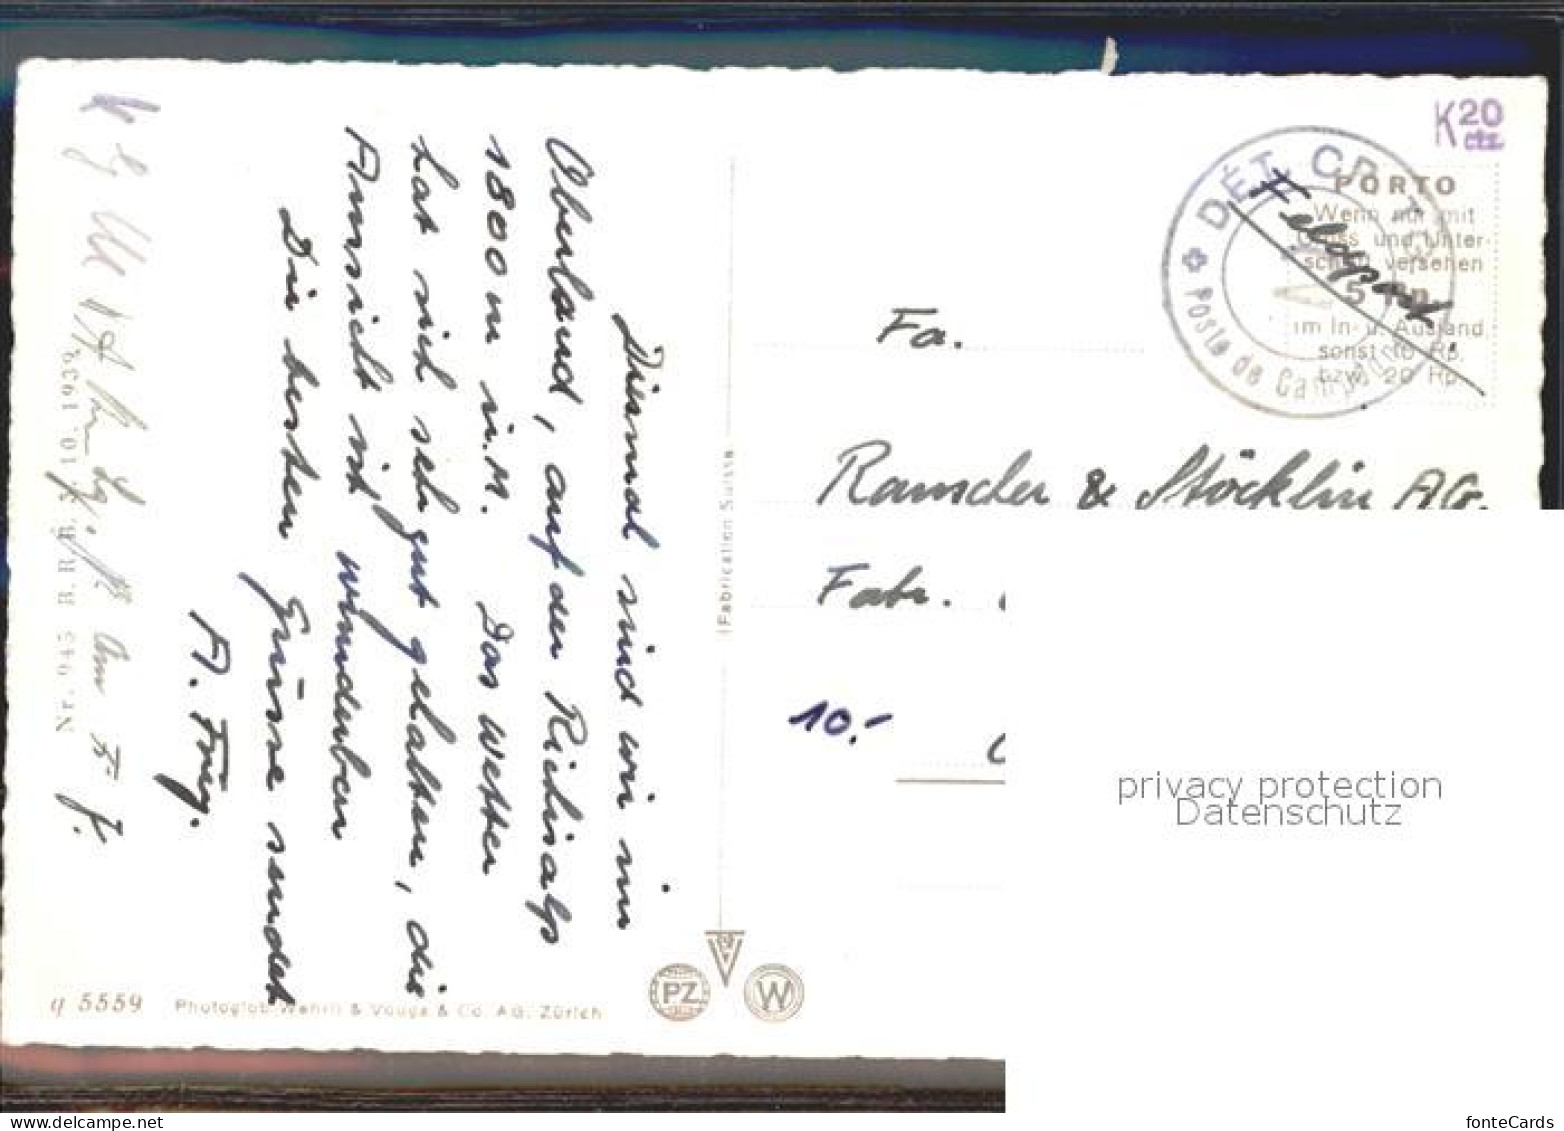 Diesmal sind wir im
Oberland, auf der Richisalp
1800 m ü. M. Das Wetter
hat sich sehr gut gehalten, die
Aussicht ist wunderbar
Die besten Grüsse sendet
A. Frey.
Nr. 945 B.R.B. 3.10.1939
q 5559
Photoglob-Wehrli & Vouga & Co. AG. Zürich
(Fabrication Suisse
PZ
W
K 20
cts
DÉT. CP.
Poste de Campagne
Feldpost
PORTO
Wenn nur mit
Gruss und Unter-
schrift versehen
5 Rp.
im In- u. Ausland
sonst 10 Rp.
bzw. 20 Rp.
Fa.
Ramseier & Stöcklin AG.
Fabr.
10.-
privacy protection
Datenschutz
fonteCards
www.delcampe.net